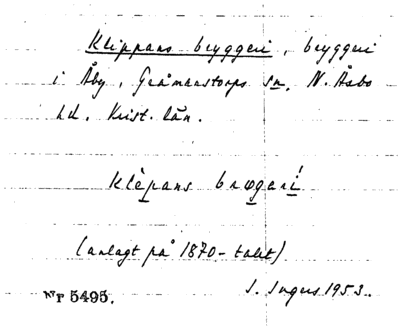 Klippans bryggeri, bryggeri
i Åby, Gråmanstorps sn, N. Åsbo
hd, Krist. län.
klèpans brøgeri!
(anlagt på 1870-talet).
S. Ingers 1953.
Nr 5495.